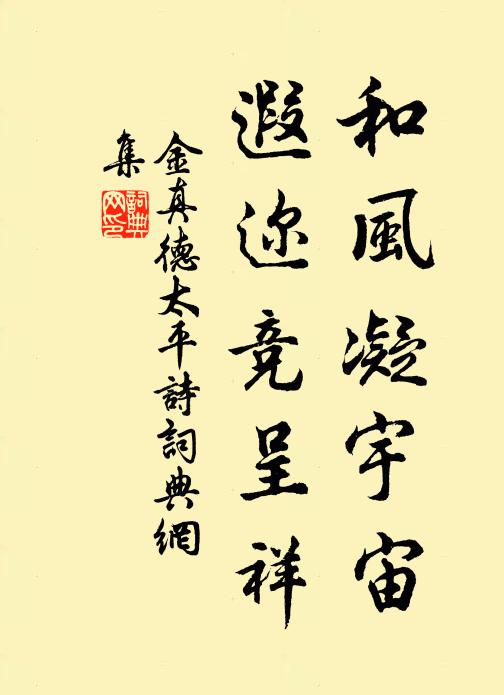 和風凝宇宙
遐迩竞呈祥
金真德太平詩詞典網
集
詞典
网印